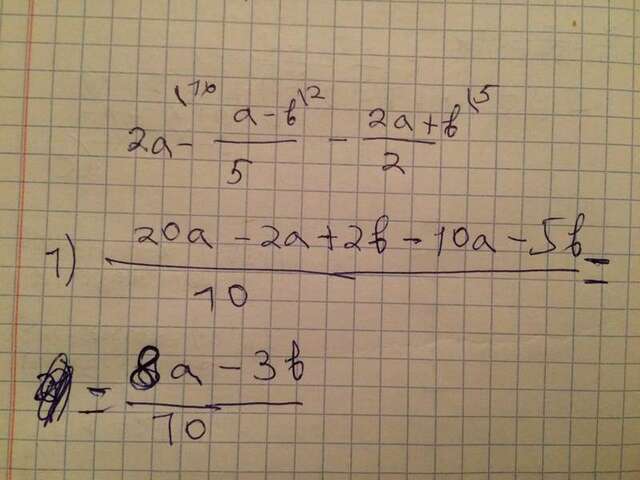 2a - \10 (a-b)/5 \2 - (2a+b)/2 \5
1) (20a - 2a + 2b - 10a - 5b)/10 =
= (8a - 3b)/10